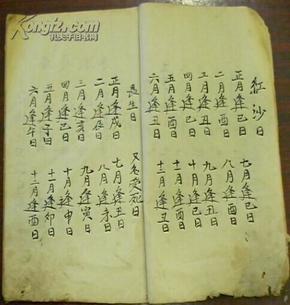 紅沙日
正月逢巳日 七月逢巳日
二月逢酉日 八月逢酉日
三月逢丑日 九月逢丑日
四月逢巳日 十月逢巳日
五月逢酉日 十一月逢酉日
六月逢丑日 十二月逢丑日
長生日 又名受死日
正月逢戌日 七月逢丑日
二月逢辰日 八月逢未日
三月逢亥日 九月逢寅日
四月逢巳日 十月逢申日
五月逢子日 十一月逢卯日
六月逢午日 十二月逢酉日